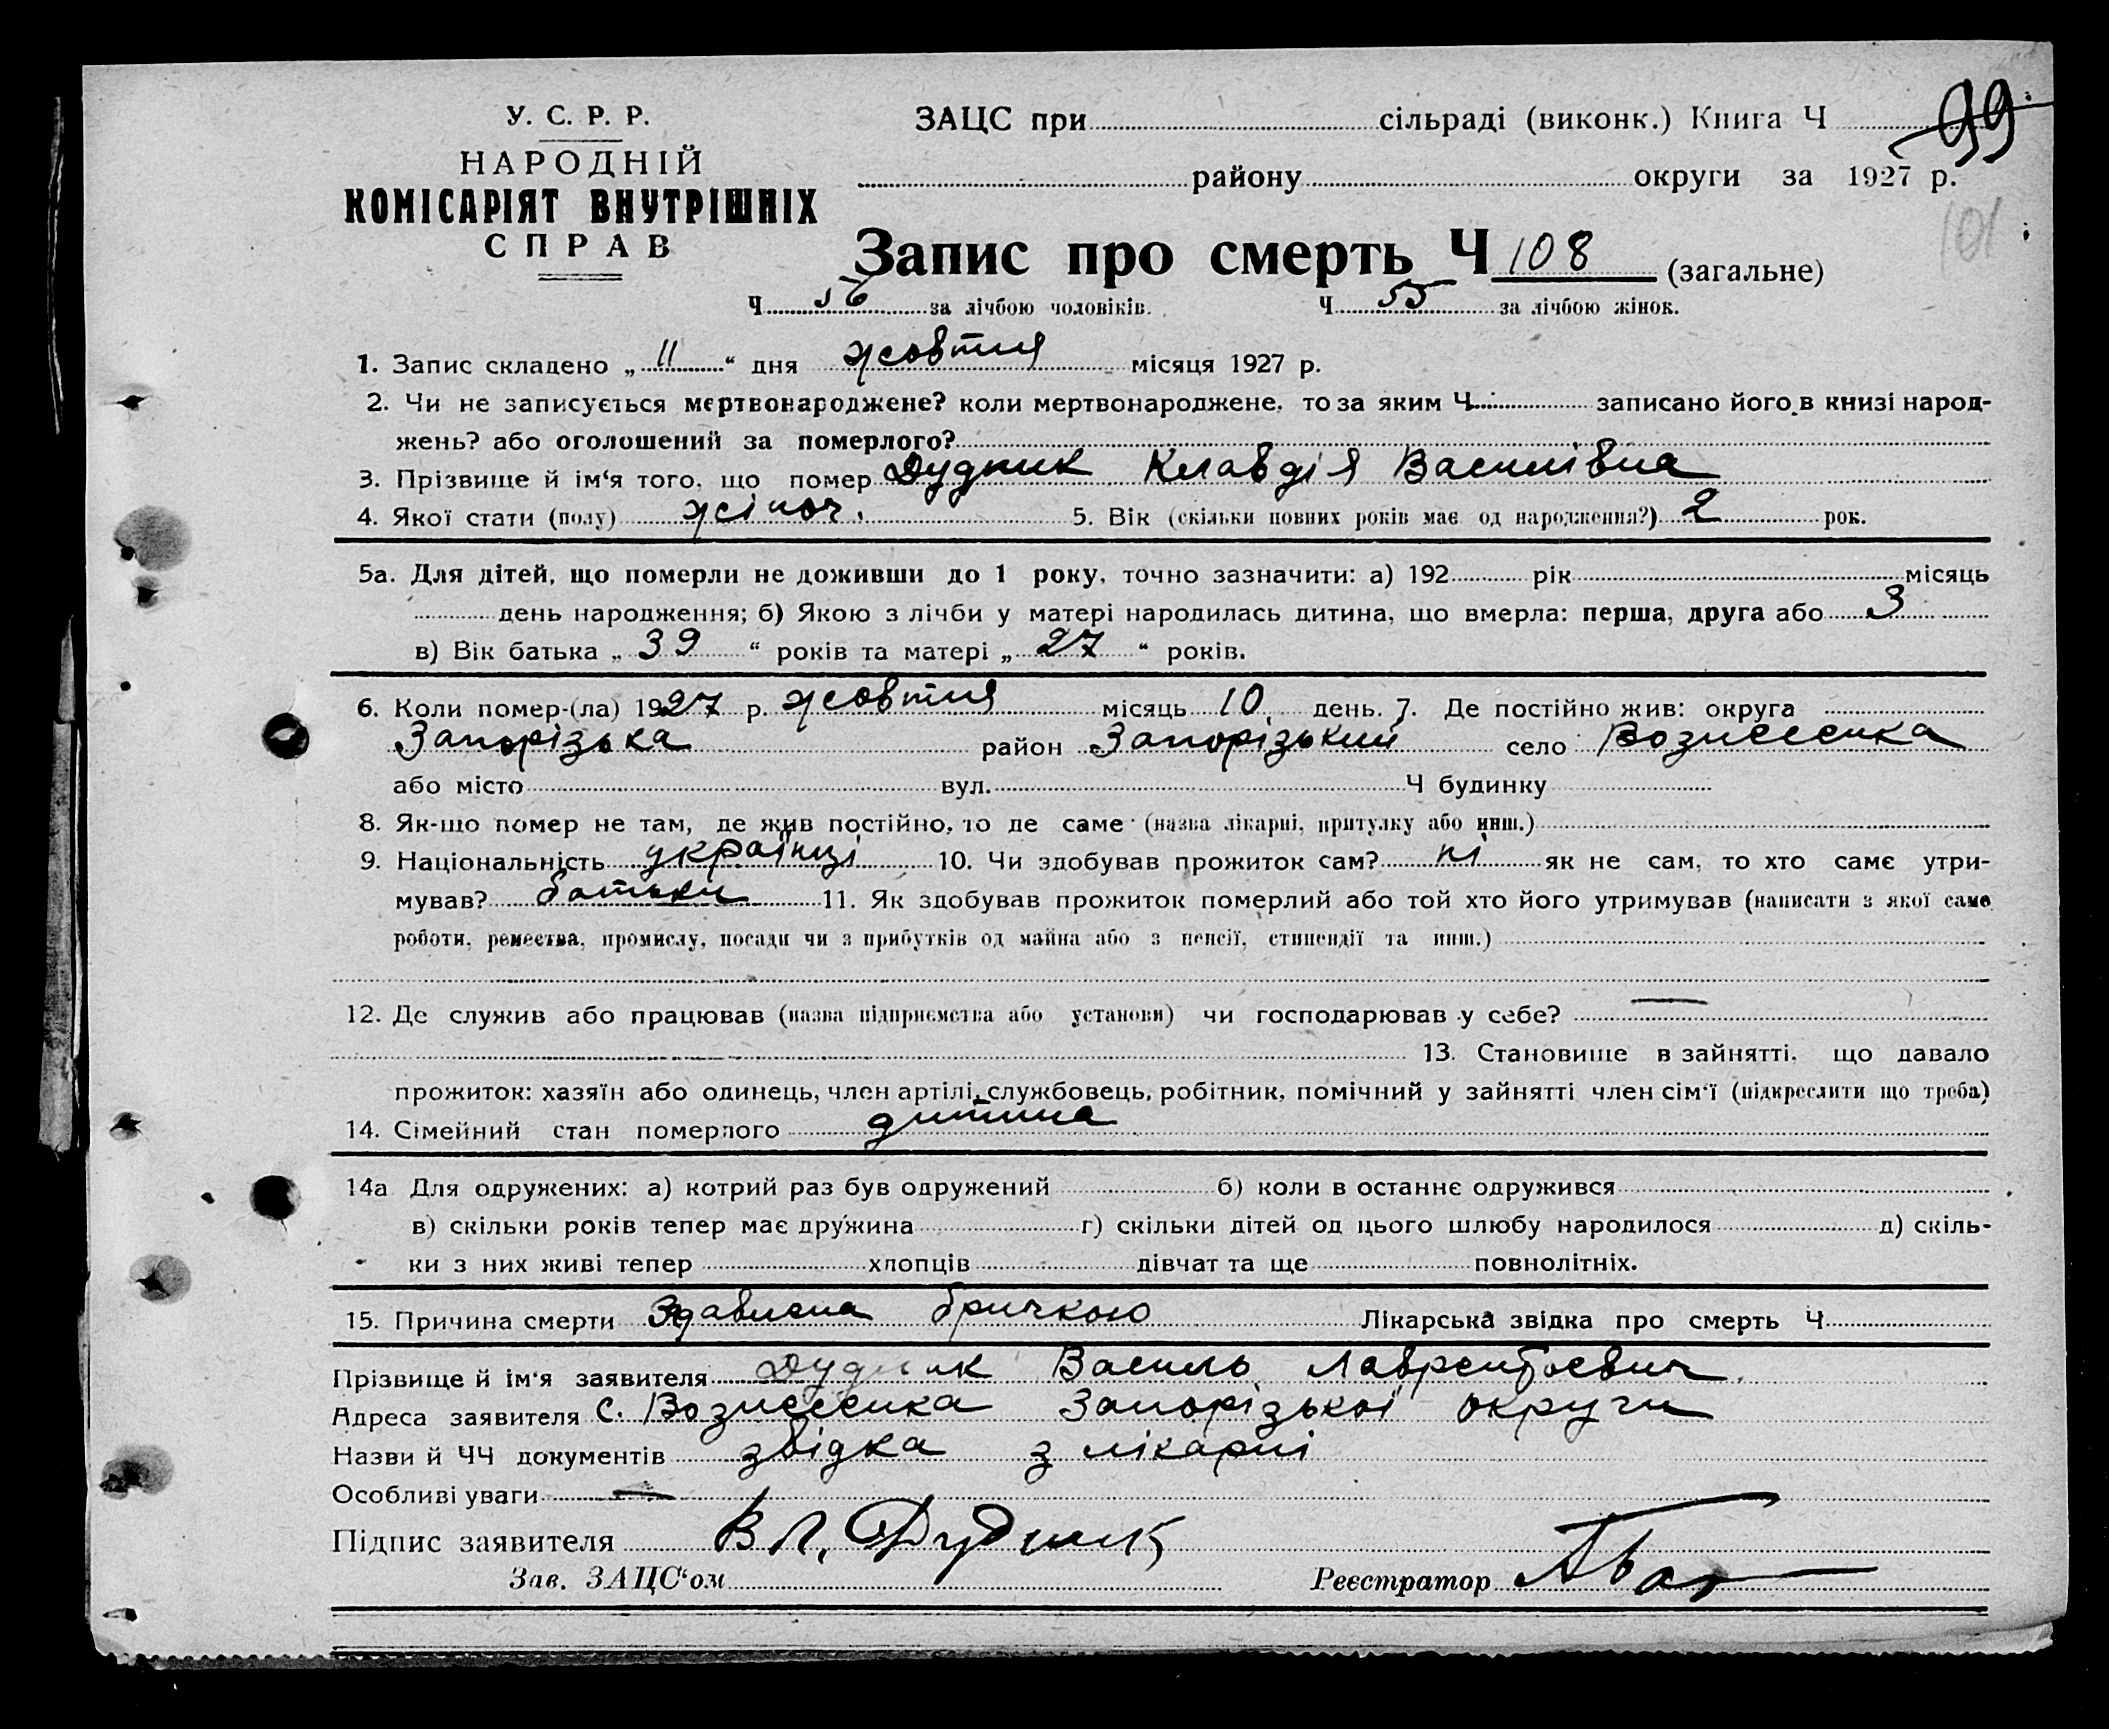 У. С. Р. Р.
НАРОДНІЙ
КОМІСАРІЯТ ВНУТРІШНІХ
СПРАВ
ЗАЦС при сільраді (виконк.) Книга Ч 99
району округи за 1927 р.
101
Запис про смерть Ч 108 (загальне)
Ч 56 за лічбою чоловіків. Ч 55 за лічбою жінок.
1. Запис складено „ 11 “ дня жовтня місяця 1927 р.
2. Чи не записується мертвонароджене? коли мертвонароджене, то за яким Ч. записано його в книзі народ-
жень? або оголошений за померлого?
3. Прізвище й ім‘я того, що помер Дудник Клавдія Василівна
4. Якої стати (полу) жіноч. 5. Вік (скільки повних років має од народження?) 2 рок.
5а. Для дітей, що померли не доживши до 1 року, точно зазначити: а) 192 рік місяць
день народження; б) Якою з лічби у матері народилась дитина, що вмерла: перша, друга або 3
в) Вік батька „ 39 “ років та матері „ 27 “ років.
6. Коли помер-(ла) 1927 р. жовтня місяць 10 день. 7. Де постійно жив: округа
Запорізька район Запорізький село Вознесенка
або місто вул. Ч будинку
8. Як-що помер не там, де жив постійно, то де саме (назва лікарні, притулку або инш.)
9. Національність українці 10. Чи здобував прожиток сам? ні як не сам, то хто саме утри-
мував? батьки 11. Як здобував прожиток померлий або той хто його утримував (написати з якої саме
роботи, ремества, промислу, посади чи з прибутків од майна або з пенсії, стипендії та инш.)
12. Де служив або працював (назва підприємства або установи) чи господарював у себе? —
13. Становище в зайнятті, що давало
прожиток: хазяїн або одинець, член артілі, службовець, робітник, помічний у зайнятті член сім‘ї (підкреслити що треба)
14. Сімейний стан померлого дитина
14а Для одружених: а) котрий раз був одружений б) коли в останнє одружився
в) скільки років тепер має дружина г) скільки дітей од цього шлюбу народилося д) скіль-
ки з них живі тепер хлопців дівчат та ще повнолітніх.
15. Причина смерти Здавлена бричкою Лікарська звідка про смерть Ч
Прізвище й ім‘я заявителя Дудник Василь Лаврентьевич
Адреса заявителя с. Вознесенка Запорізької округи
Назви й ЧЧ документів звідка з лікарні
Особливі уваги —
Підпис заявителя В Л. Дудник
Зав. ЗАЦС‘ом Реєстратор